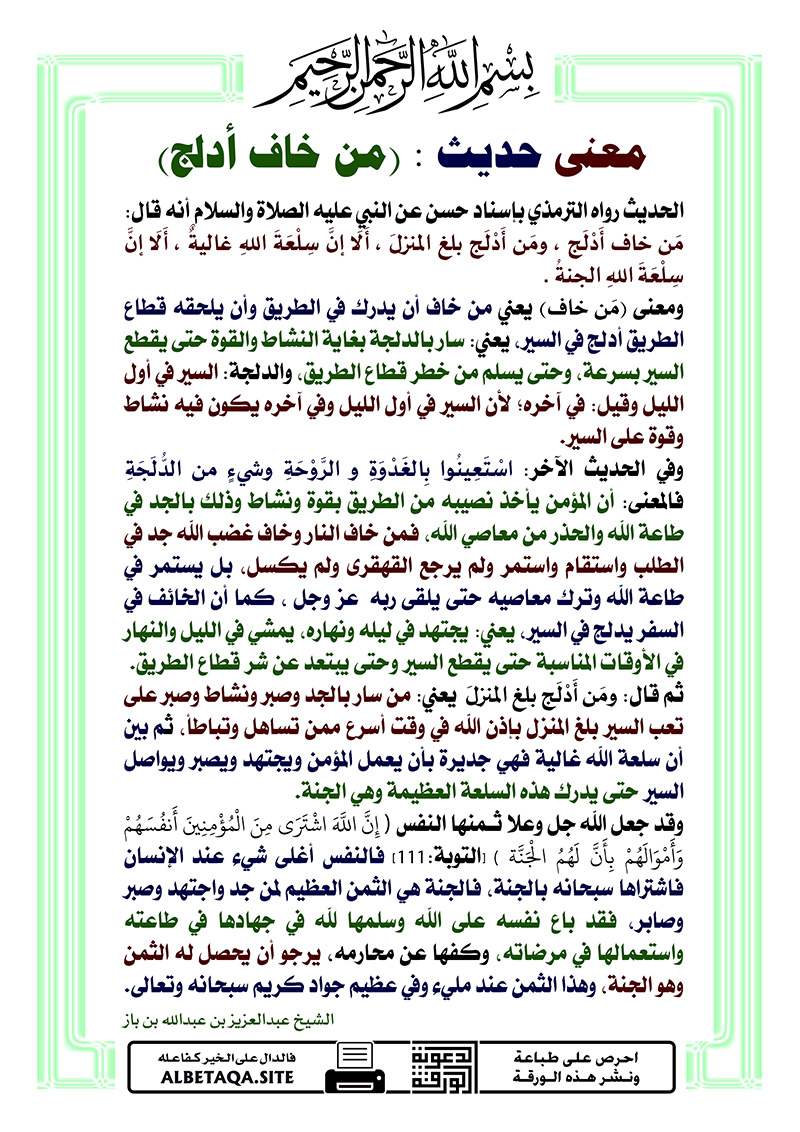 بِسْمِ اللَّهِ الرَّحْمَنِ الرَّحِيمِ
معنى حديث : (من خاف أدلج)
الحديث رواه الترمذي بإسناد حسن عن النبي عليه الصلاة والسلام أنه قال:
مَن خاف أَدْلَج ، ومَن أَدْلَج بلغ المنزلَ ، ألَا إنَّ سِلْعَةَ اللهِ غاليةٌ ، ألَا إنَّ
سِلْعَةَ اللهِ الجنةُ .
ومعنى (مَن خاف) يعني من خاف أن يدرك في الطريق وأن يلحقه قطاع
الطريق أدلج في السير، يعني: سار بالدلجة بغاية النشاط والقوة حتى يقطع
السير بسرعة، وحتى يسلم من خطر قطاع الطريق، والدلجة: السير في أول
الليل وقيل: في آخره؛ لأن السير في أول الليل وفي آخره يكون فيه نشاط
وقوة على السير.
وفي الحديث الآخر: اسْتَعِينُوا بِالغَدْوَةِ و الرَّوْحَةِ وشيءٍ من الدُّلَجَةِ
فالمعنى: أن المؤمن يأخذ نصيبه من الطريق بقوة ونشاط وذلك بالجد في
طاعة الله والحذر من معاصي الله، فمن خاف النار وخاف غضب الله جد في
الطلب واستقام واستمر ولم يرجع القهقرى ولم يكسل، بل يستمر في
طاعة الله وترك معاصيه حتى يلقى ربه عز وجل ، كما أن الخائف في
السفر يدلج في السير، يعني: يجتهد في ليله ونهاره، يمشي في الليل والنهار
في الأوقات المناسبة حتى يقطع السير وحتى يبتعد عن شر قطاع الطريق.
ثم قال: ومَن أَدْلَج بلغ المنزلَ يعني: من سار بالجد وصبر ونشاط وصبر على
تعب السير بلغ المنزل بإذن الله في وقت أسرع ممن تساهل وتباطأ، ثم بين
أن سلعة الله غالية فهي جديرة بأن يعمل المؤمن ويجتهد ويصبر ويواصل
السير حتى يدرك هذه السلعة العظيمة وهي الجنة.
وقد جعل الله جل وعلا ثمنها النفس ( إِنَّ اللَّهَ اشْتَرَى مِنَ الْمُؤْمِنِينَ أَنفُسَهُمْ
وَأَمْوَالَهُمْ بِأَنَّ لَهُمُ الْجَنَّةَ ) [التوبة:111] فالنفس أغلى شيء عند الإنسان
فاشتراها سبحانه بالجنة، فالجنة هي الثمن العظيم لمن جد واجتهد وصبر
وصابر، فقد باع نفسه على الله وسلمها لله في جهادها في طاعته
واستعمالها في مرضاته، وكفها عن محارمه، يرجو أن يحصل له الثمن
وهو الجنة، وهذا الثمن عند مليء وفي عظيم جواد كريم سبحانه وتعالى.
الشيخ عبدالعزيز بن عبدالله بن باز
احرص على طباعة
ونشر هذه الورقة
الورقة الدعوية
فالدال على الخير كفاعله
ALBETAQA.SITE